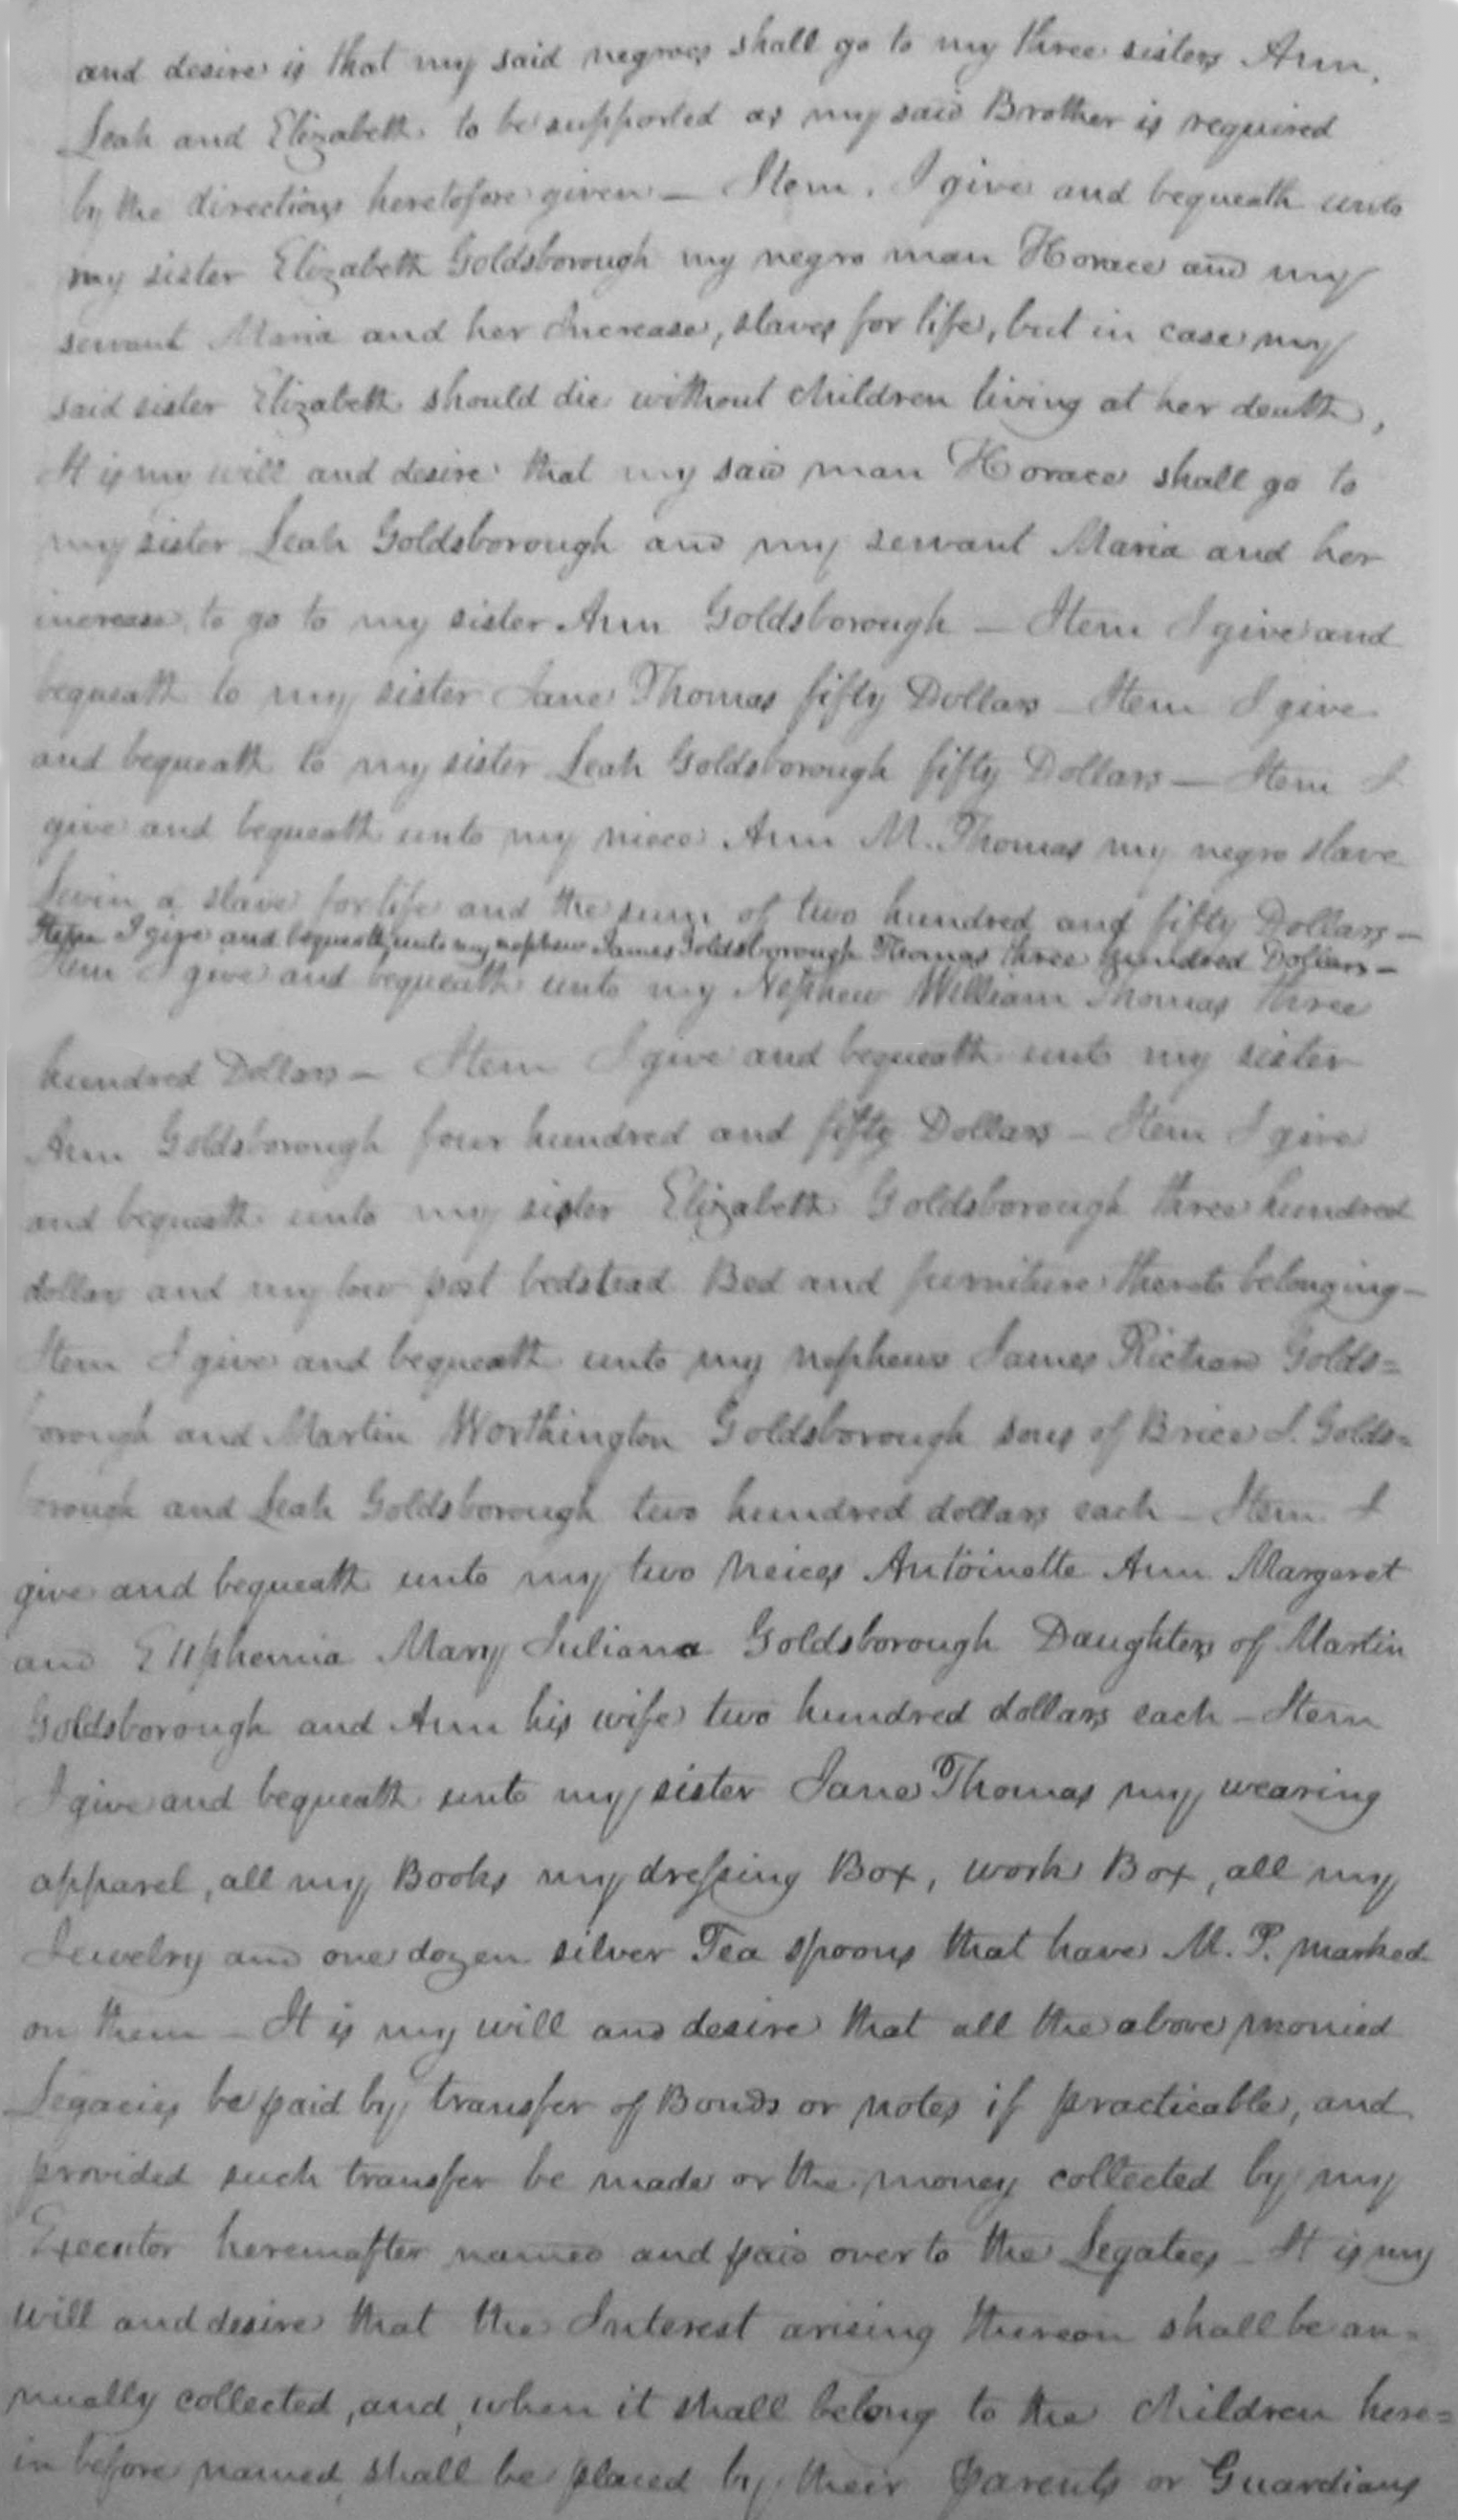 and desire is that my said negroes shall go to my three sisters Ann,
Leah and Elizabeth to be supported as my said Brother is required
by the directions heretofore given — Item. I give and bequeath unto
my sister Elizabeth Goldsborough my negro man Horace and my
servant Maria and her Increase, slaves for life, but in case my
said sister Elizabeth should die without children living at her death,
It is my will and desire that my said man Horace shall go to
my sister Leah Goldsborough and my servant Maria and her
increase to go to my sister Ann Goldsborough — Item I give and
bequeath to my sister Jane Thomas fifty Dollars — Item I give
and bequeath to my sister Leah Goldsborough fifty Dollars — Item I
give and bequeath unto my niece Ann M. Thomas my negro slave
Levin a slave for life and the sum of two hundred and fifty Dollars —
Item I give and bequeath unto my nephew James Goldsborough Thomas three hundred Dollars —
Item I give and bequeath unto my Nephew William Thomas three
hundred Dollars — Item I give and bequeath unto my sister
Ann Goldsborough four hundred and fifty Dollars — Item I give
and bequeath unto my sister Elizabeth Goldsborough three hundred
dollars and my low post bedstead Bed and furniture thereto belonging —
Item I give and bequeath unto my nephews James Richard Golds=
borough and Martin Worthington Goldsborough sons of Brice J. Golds=
borough and Leah Goldsborough two hundred dollars each — Item I
give and bequeath unto my two neices Antoinette Ann Margaret
and Euphemia Mary Juliana Goldsborough Daughters of Martin
Goldsborough and Ann his wife two hundred dollars each — Item
I give and bequeath unto my sister Jane Thomas my wearing
apparel, all my Books my dressing Box, work Box, all my
Jewelry and one dozen silver Tea spoons that have M. P. marked
on them — It is my will and desire that all the above monied
Legacies be paid by transfer of Bonds or notes if practicable, and
provided such transfer be made or the money collected by my
Executor hereinafter named and paid over to the Legatees — It is my
will and desire that the Interest arising thereon shall be an=
nually collected, and when it shall belong to the children here=
in before named shall be placed by their parents or Guardians